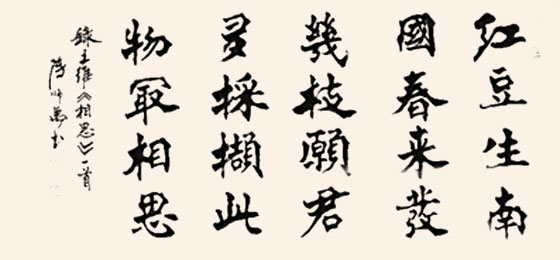 紅豆生南
國春来發
幾枝願君
多採擷此
物冣相思
錄王維《相思》一首